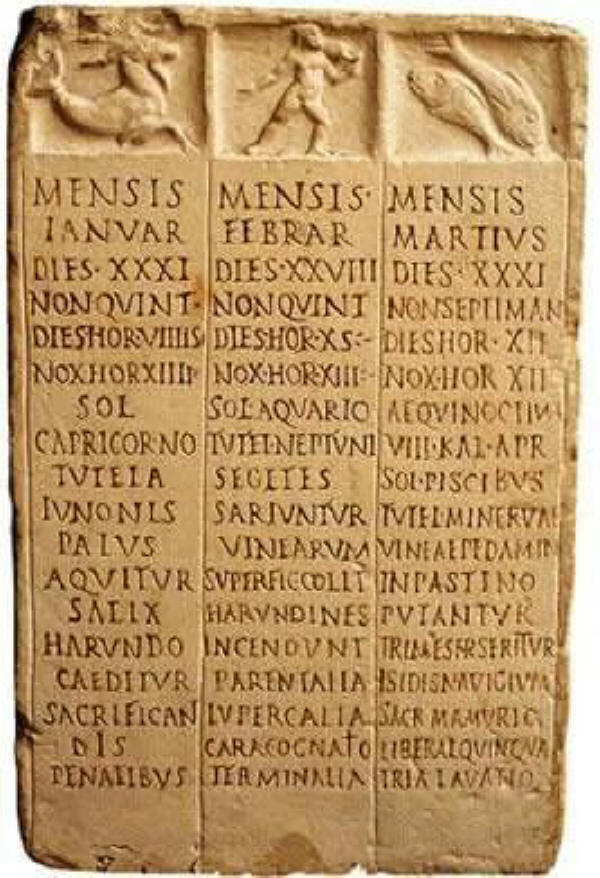 MENSIS
IANVAR
DIES·XXXI
NONQVINT·
DIESHOR·VIIIIS
NOXHORXIIII
SOL
CAPRICORNO
TVTELA
IVNONIS
PALVS
AQVITVR
SALIX
HARVNDO
CAEDITVR
SACRIFICAN
DIS
PENATIBVS
MENSIS·
FEBRAR
DIES·XXVIII
NONQVINT
DIES·HOR·XS
NOX·HOR·XIII
SOLAQVARIO
TVTEL·NEPTVNI
SEGETES
SARIVNTVR
VINEARVM
SVPERFIC·COLIT
HARVNDINES
INCENDVNT
PARENTALIA
LVPERCALIA
CARACOGNATO
TERMINALIA
MENSIS
MARTIVS
DIES·XXXI
NONSEPTIMAN
DIESHOR·XII
NOX·HOR XII
AEQVINOCTIVM
VIII·KAL·APR
SOL·PISCIBVS
TVTEL·MINERVAE
VINEAEPEDAMIN
INPASTINO
PVTANTVR
TRIMESTRSERITVR
ISIDISNAVIGIVM
SACR MAMVRIO
LIBERALQVINQVA
TRIALAVATIO